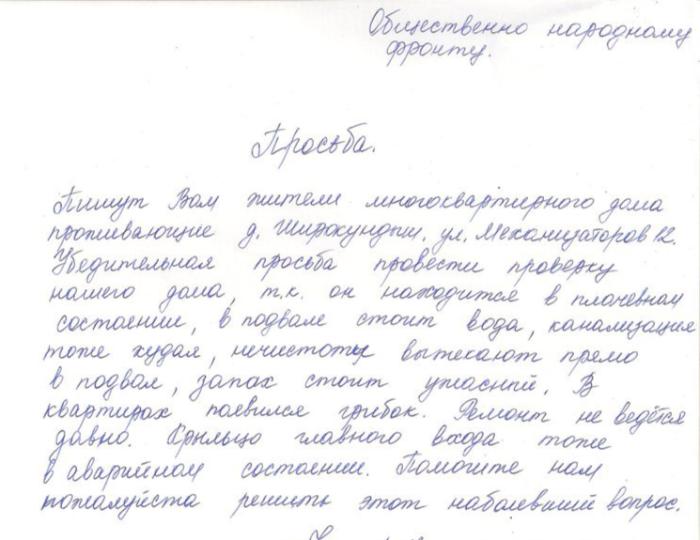 Общественно народному
фронту.
Просьба.
Пишут Вам жители многоквартирного дома
проживающие д. Широкундыш. ул. Механизаторов 12.
Убедительная просьба провести проверку
нашего дома, т.к. он находится в плачевном
состоянии, в подвале стоит вода, канализация
тоже худая, нечистоты вытекают прямо
в подвал, запах стоит ужасный. В
квартирах появился грибок. Ремонт не ведётся
давно. Крыльцо главного входа тоже
в аварийном состоянии. Помогите нам
пожалуйста решить этот наболевший вопрос.